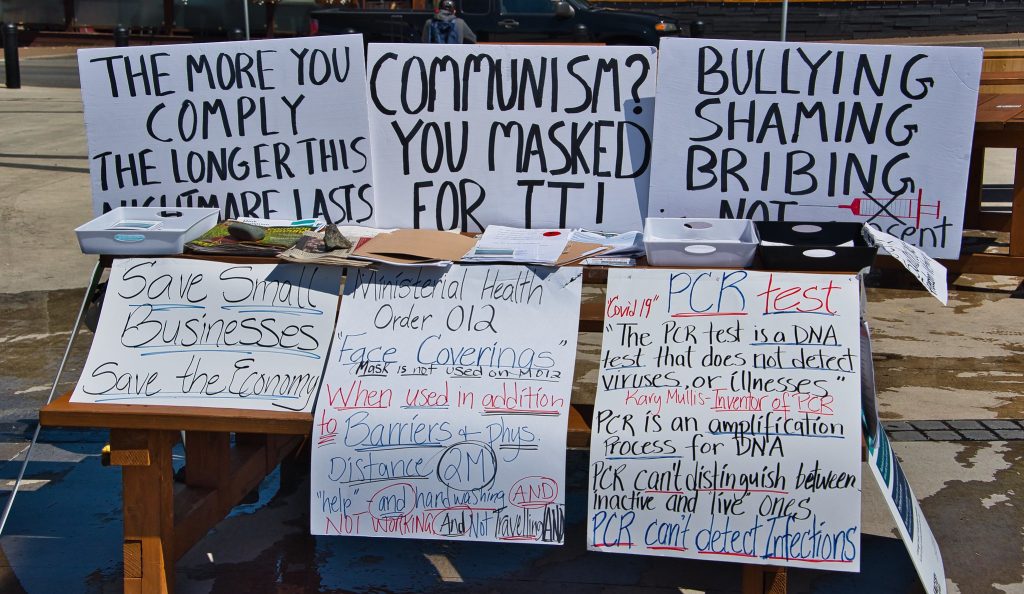 THE MORE YOU
COMPLY
THE LONGER THIS
NIGHTMARE LASTS
COMMUNISM?
YOU MASKED
FOR IT!
BULLYING
SHAMING
BRIBING
NOT
Consent
Save Small
Businesses
Save the Economy
Ministerial Health
Order 012
"Face Coverings"
Mask is not used on MO12
When used in addition
to Barriers & phys.
Distance 2M
"help" and handwashing AND
NOT WORKING And Not Travelling AND
"Covid 19" PCR test
"The PCR test is a DNA
test that does not detect
viruses, or illnesses"
Kary Mullis - Inventor of PCR
PCR is an amplification
Process for DNA
PCR can't distinguish between
inactive and "live" ones
PCR can't detect Infections